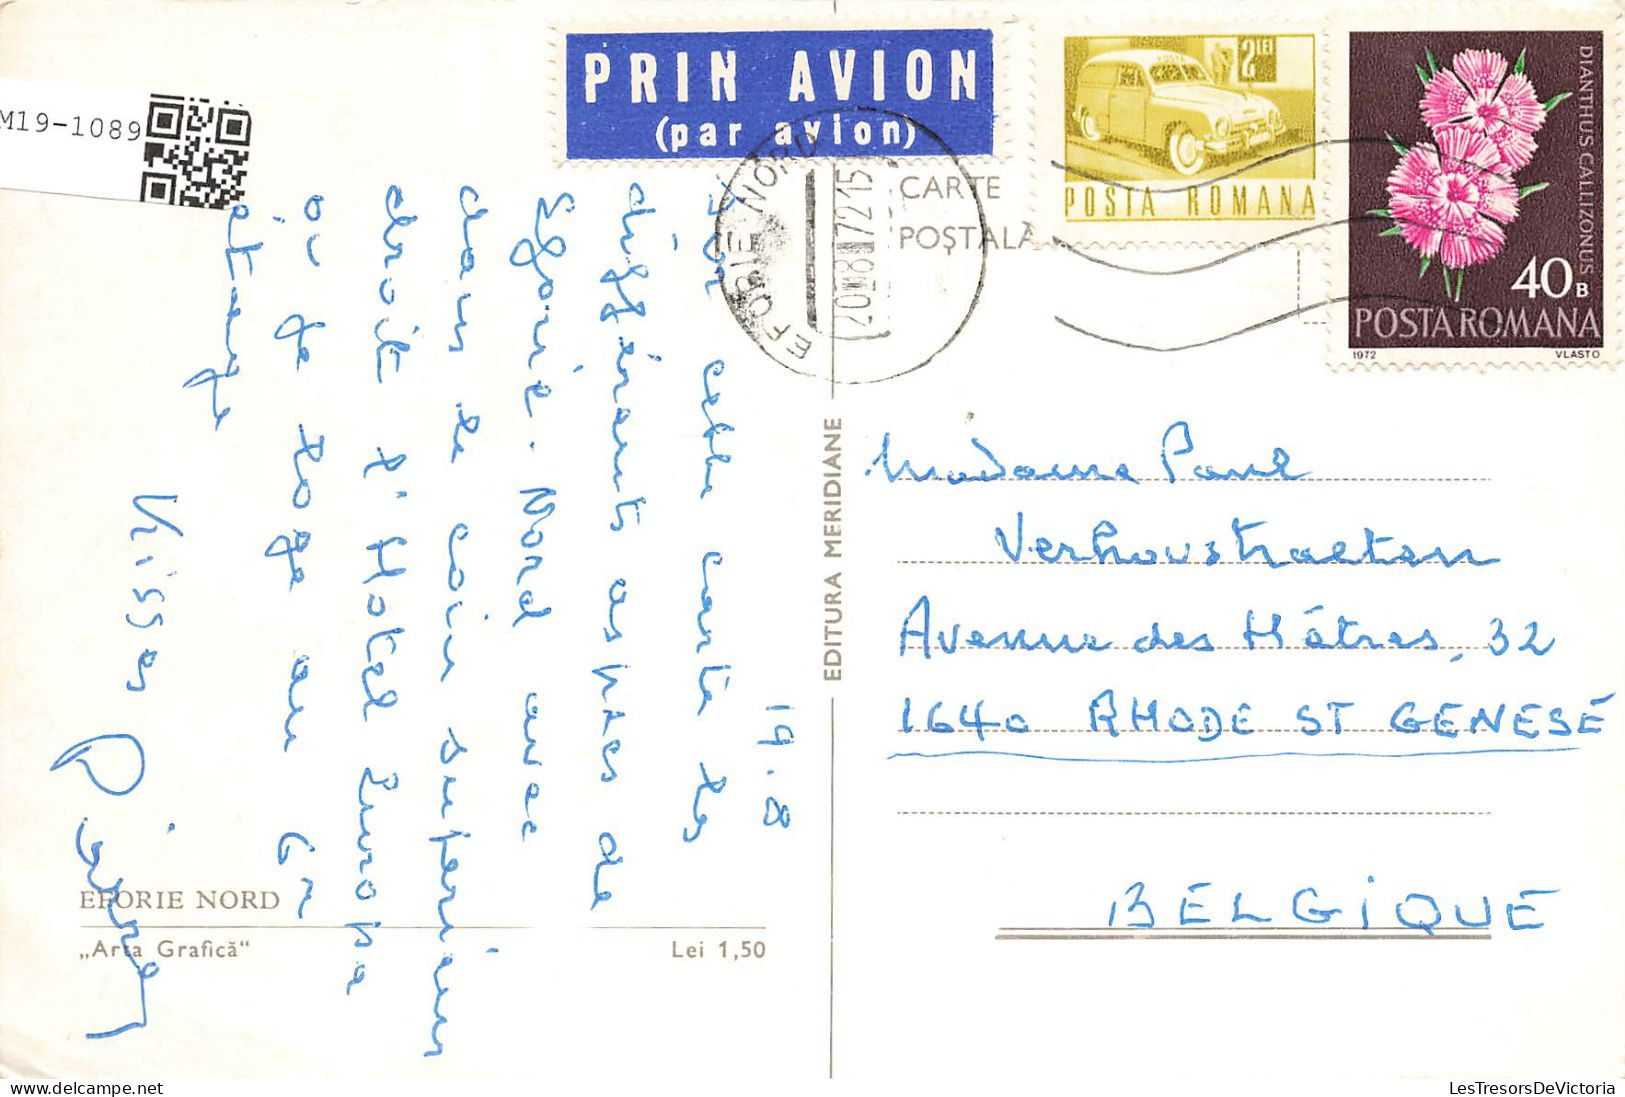 M19-1089
PRIN AVION
(par avion)
2 LEI
POSTA
POSTA ROMANA
DIANTHUS CALLIZONUS
40 B
POSTA ROMANA
1972 VLASTO
EFORIE NORD
20 8 72 15
CARTE
POȘTALĂ
19.8
Sur cette carte les
différents aspects de
Eforie-Nord avec
dans le coin supérieur
droit l'Hotel Europa
où je loge au 6e
étage
Kisses
EDITURA MERIDIANE
Madame Paul
Verhoustraeten
Avenue des Hêtres, 32
1640 RHODE ST GENESE
BELGIQUE
EFORIE NORD
„Arta Grafică“
Lei 1,50
LesTresorsDeVictoria
www.delcampe.net